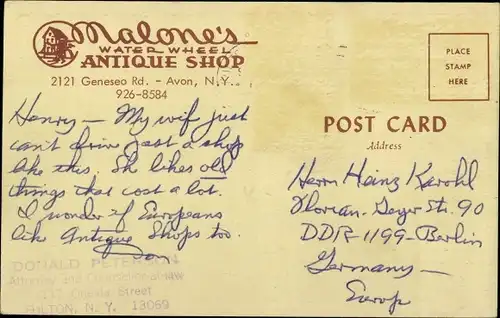 Malone's
WATER WHEEL
ANTIQUE SHOP
2121 Geneseo Rd. - Avon, N.Y.
926-8584
Henry - My wife just
can't drive past a shop
like this. She likes old
things that cost a lot.
I wonder if Europeans
like Antique Shops too.
Don
DONALD PETERSON
Attorney and Counselor-at-Law
Street
HILTON, N. Y. 13069
PLACE
STAMP
HERE
POST CARD
Address
Herrn Heinz Karohl
Florian-Geyer Str. 90
DDR-1199-Berlin
Germany -
Europ